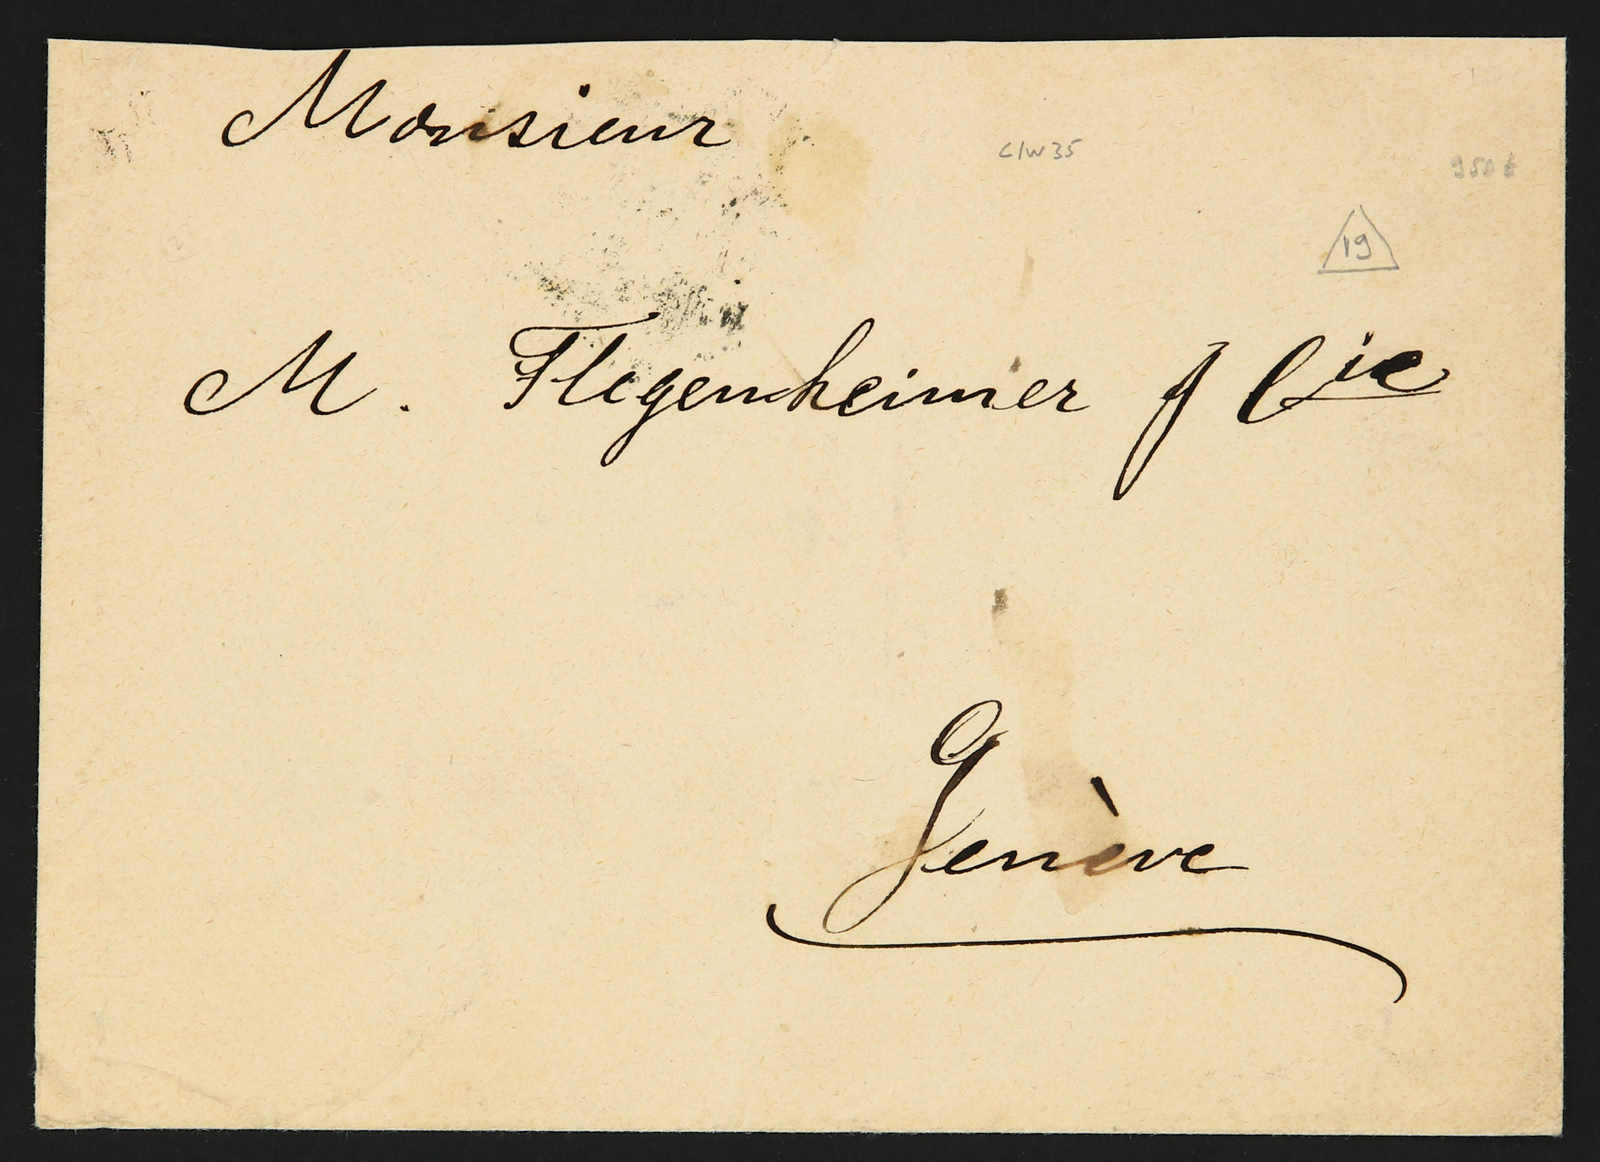 Monsieur
C/W 35
19
M. Flegenheimer & Cie
Genève